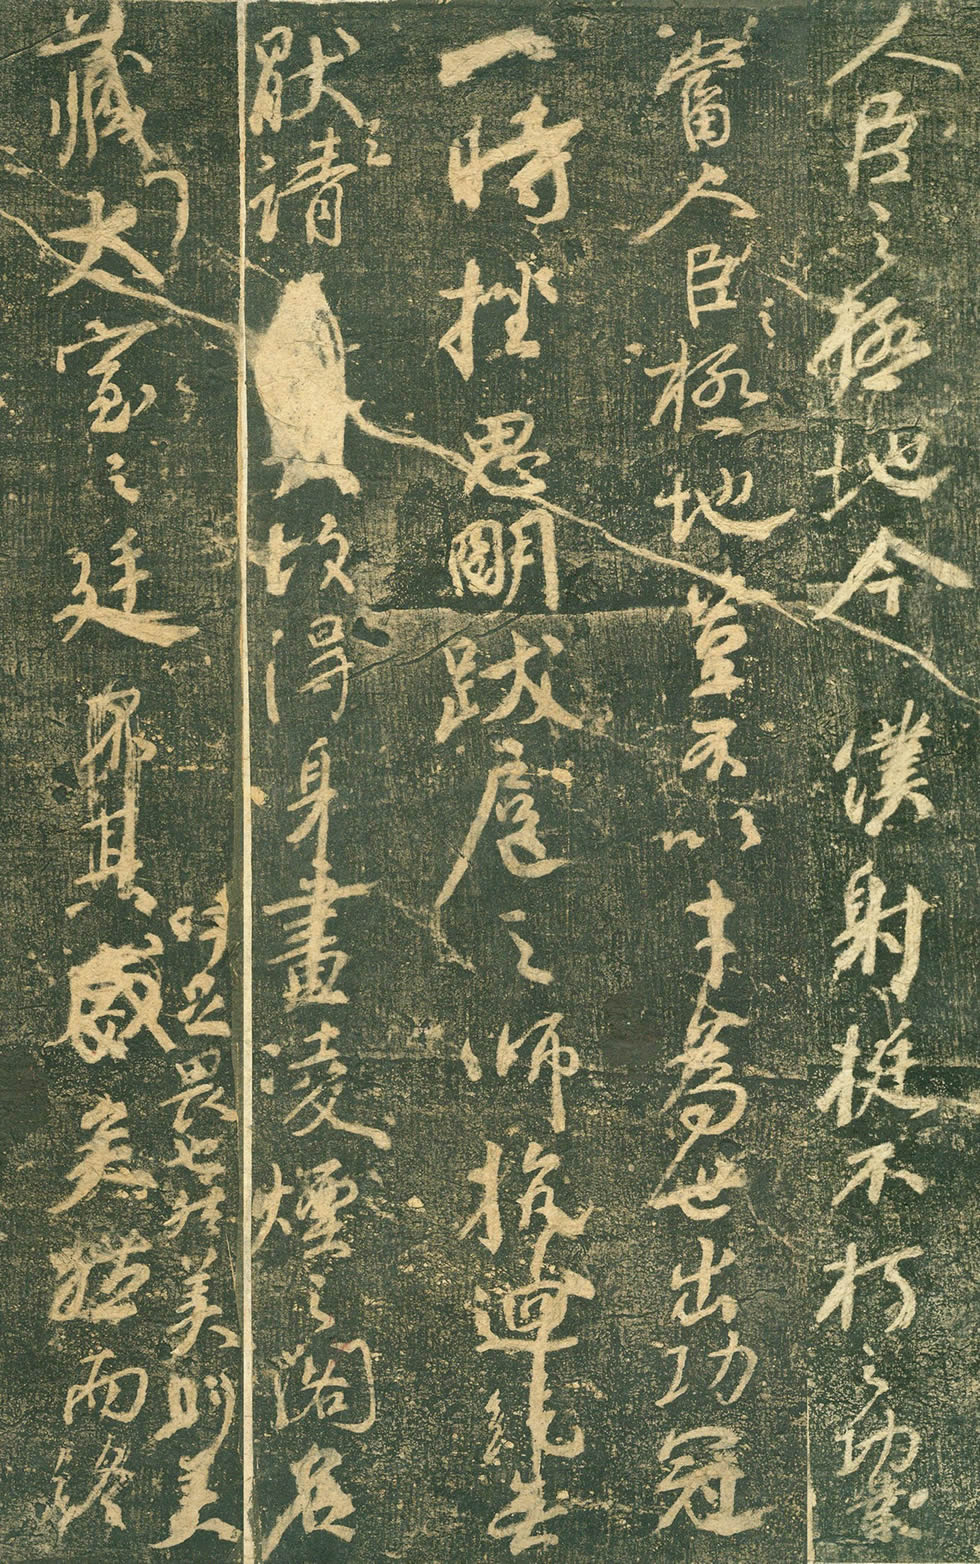 人臣之極地今僕射挺不朽之功業
當人臣極地豈不以才為世出功冠
一時挫思明跋扈之師抗迴紇無
猒之請故得身畫凌煙之閣名
藏太室之廷吁足畏也然美則美矣然而終